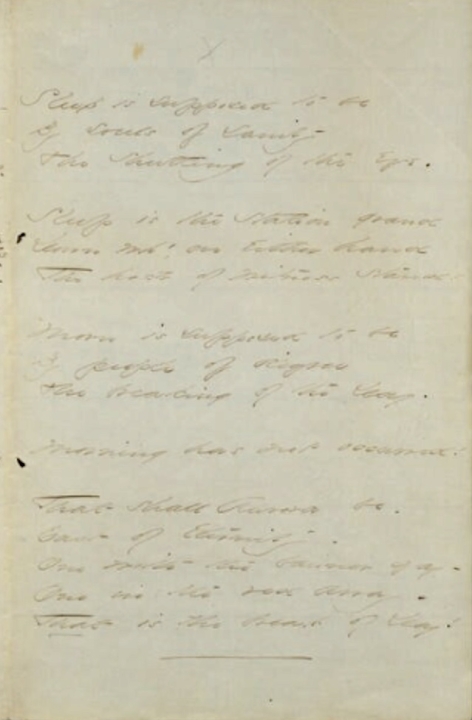 Sleep is supposed to be
By souls of sanity -
The shutting of the Eye.
Sleep is the station grand
Down wh! on Either hand
The host of Witness stand -
Morn is supposed to be
By people of degree
The breaking of the Day.
Morning has not occurred!
That shall Aurora be -
East of Eternity -
One with the banner gay -
One in the red array -
That is the break of Day!